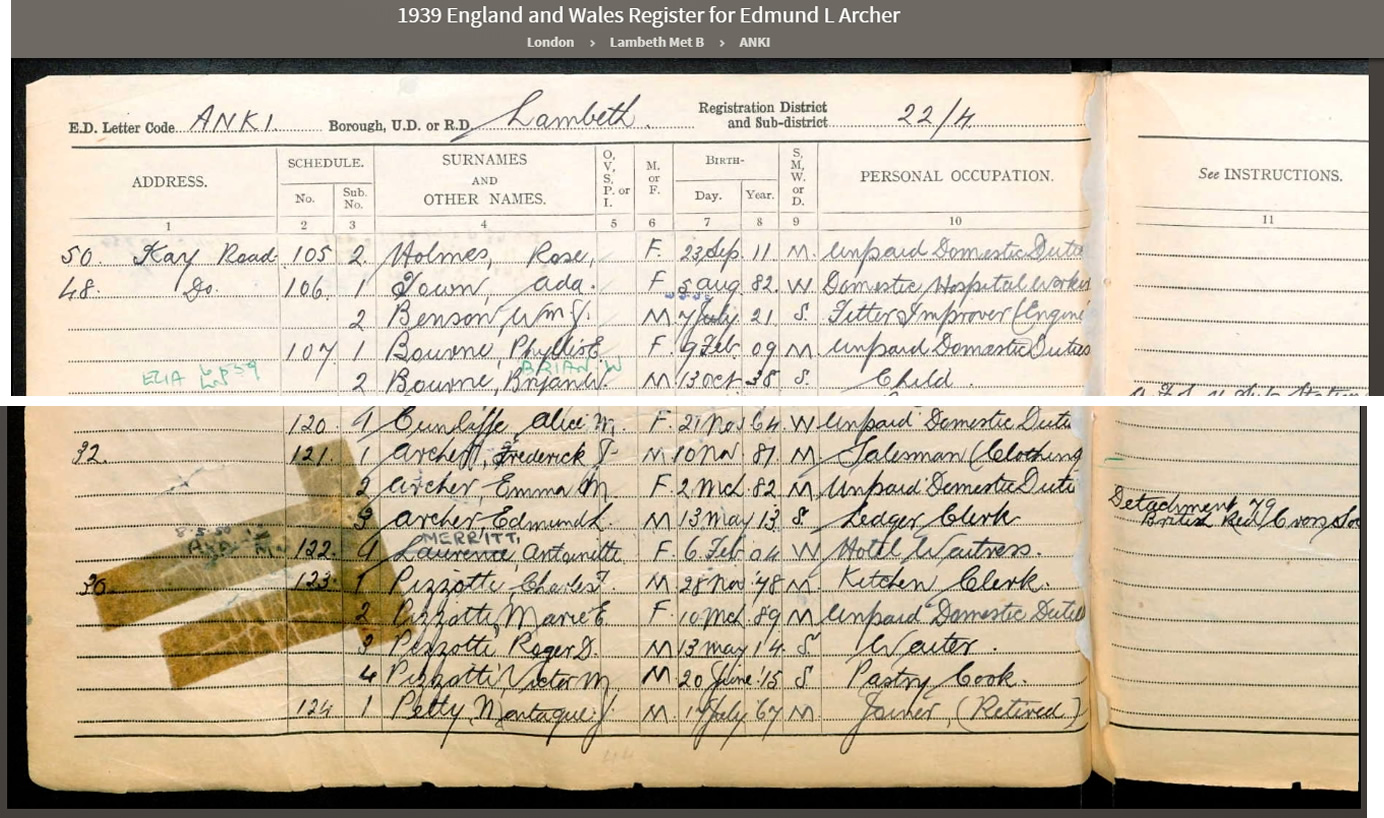 1939 England and Wales Register for Edmund L Archer
London › Lambeth Met B › ANKI
E.D. Letter Code ANKI. Borough, U.D. or R.D. Lambeth. Registration District and Sub-district 22/4
ADDRESS. SCHEDULE. No. Sub. No. SURNAMES AND OTHER NAMES. O, V, S, P. or I. M. or F. BIRTH- Day. Year. S, M, W. or D. PERSONAL OCCUPATION. See INSTRUCTIONS.
1 2 3 4 5 6 7 8 9 10 11
50. Kay Road 105 2. Holmes, Rose, F. 23 Sep. 11 M. Unpaid Domestic Duties
48. Do. 106. 1 Town, Ada. F 5 Aug. 82. W Domestic Hospital Worker
2 Benson, Wm J. M 7 July 21 S. Fitter Improver (Engine
107 1 Bourne, Phyllis E. F. 9 Feb 09 M Unpaid Domestic Duties
BRIAN W
2 Bourne, M. 13 Oct 38 S. Child.
120. 1 Cunliffe, Alice M. F. 21 Nov 64. W Unpaid Domestic Duti
32. 121. 1 Archer, Frederick M 10 Nov 81 M. Salesman (Clothing
2 Archer, Emma M. F. 2 Mch 82 M Unpaid Domestic Duti
Detachment 79
3 Archer Edmund L. M 13 May 13 S. Ledger Clerk British Red Cross
MERRITT,
122. 1 Laurence, Antoinette F. 6 Feb 04 W Hotel Waitress.
30. 123. 1 Pizzotti, Charles M 28 Nov '78 M. Kitchen Clerk.
2 Pizzotti, Marie E F. 10 Mch 89 M Unpaid Domestic Duties
3 Pizzotti Roger D. M 13 May 14 S Waiter.
4 Pizzotti Victor M M. 20 June '15 S Pastry Cook.
124 1 Petty, Montague J. M. 17 July '67 M. Joiner, (Retired)